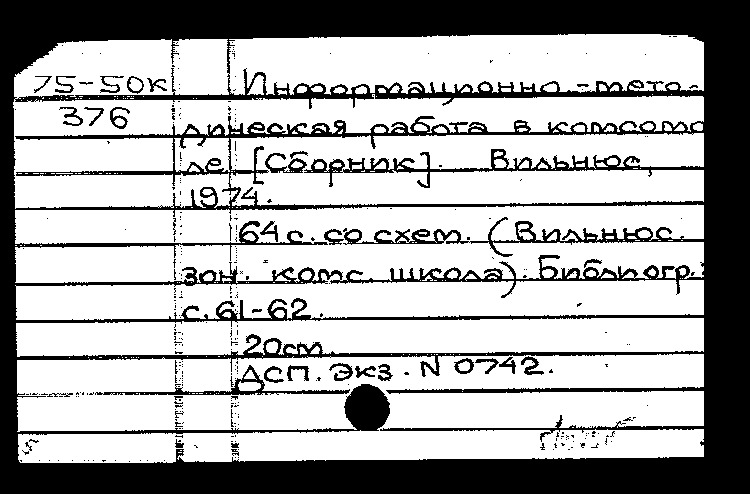 75-50к Информационно-мето-
376 дическая работа в комсомо
ле. [Сборник]. Вильнюс,
1974.
64 с. со схем. (Вильнюс.
зон. комс. школа). Библиогр.:
с. 61-62.
20см.
ДСП. Экз. N 0742.